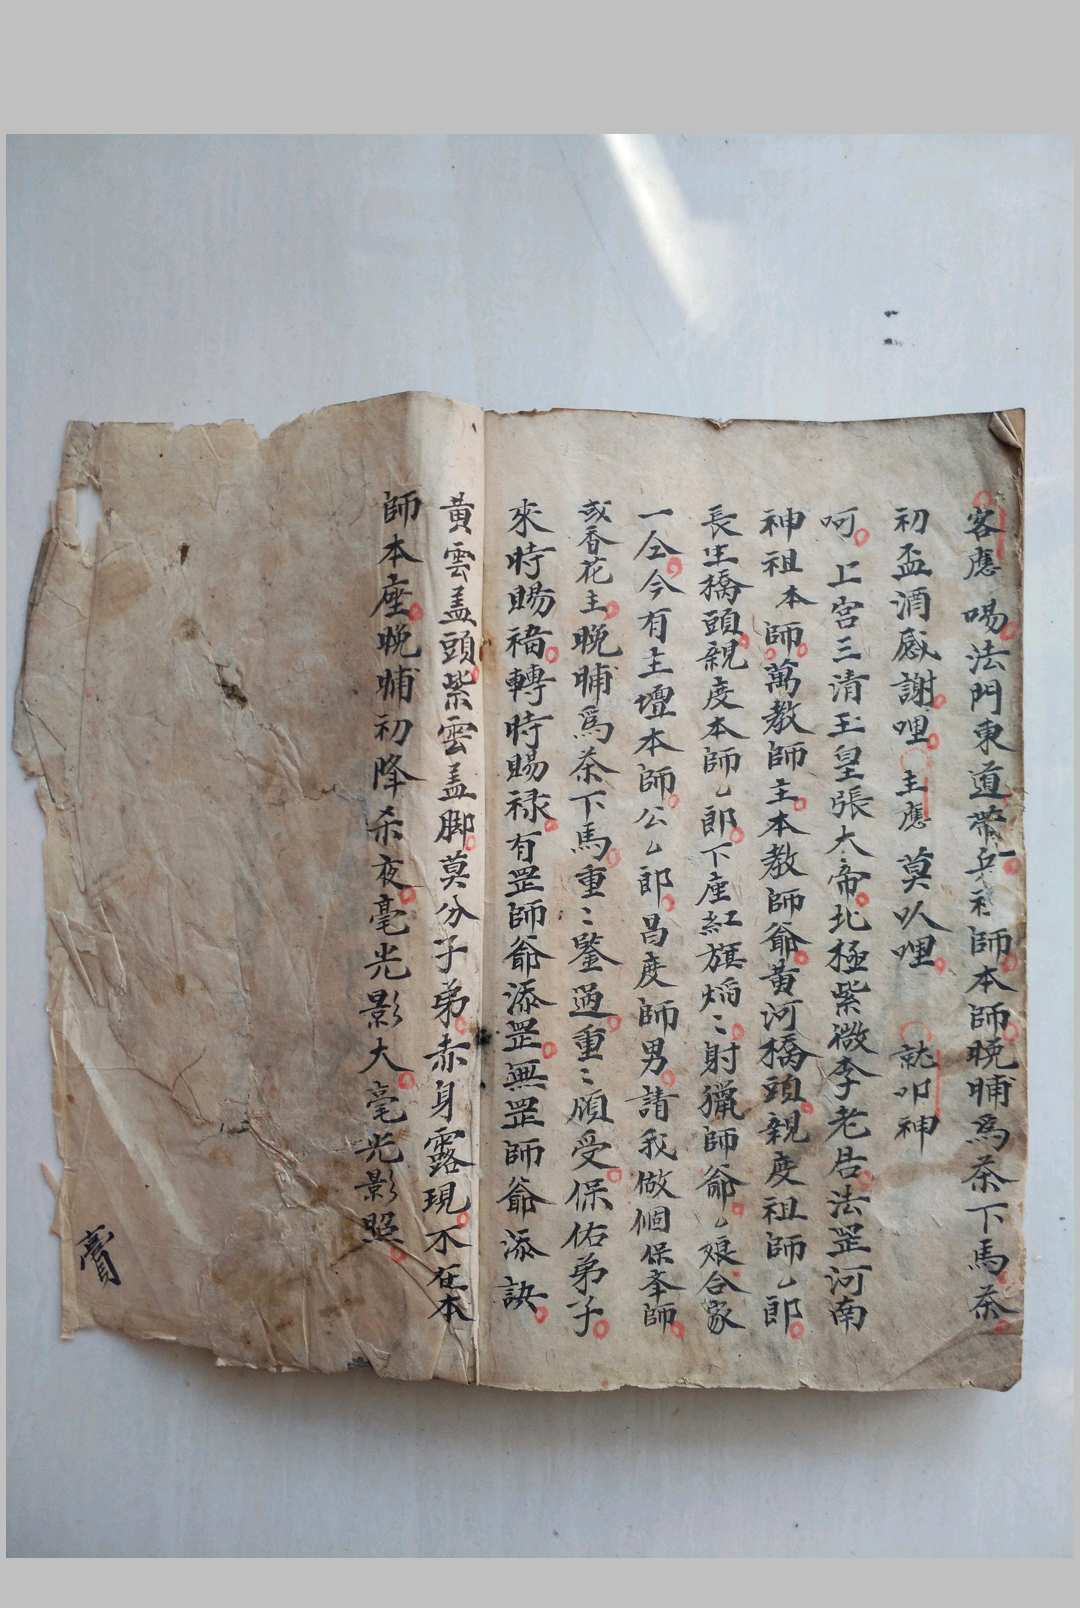 客應 喝法門東道帶兵祖師本師晚晡爲茶下馬茶
初盃酒感謝哩 主應 莫以哩 就叩神
呵 上宫三清玉皇張大帝北極紫微李老君法罡河南
神祖本師萬教師主本教師爺黄河橋頭親度祖師乙郎
長生橋頭親度本師乙郎下座紅旗焰〻射獵師爺乙娘合家
一仝今有主壇本師公乙郎昌度師男請我做個保奉師
或香花主晚晡爲茶下馬重〻鑒過重〻領受保佑弟子
來時賜福轉時賜禄有罡師爺添罡無罡師爺添訣
黄雲盖頭紫雲盖脚莫分子弟赤身露現不在本
師本座晚晡初降杀夜毫光影大毫光影照